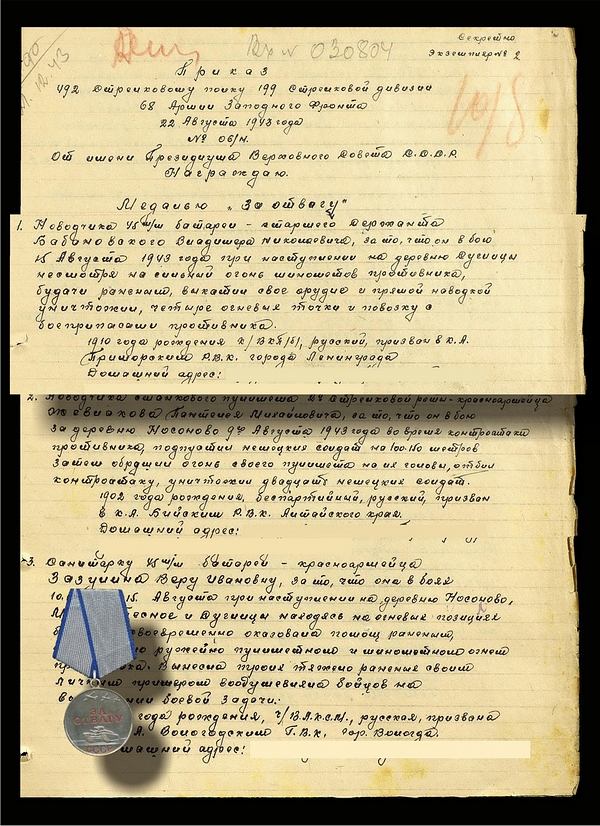 Секретно
Экземпляр № 2
Вх № 020804
12.43
Приказ
492 Стрелковому полку 199 Стрелковой дивизии
68 Армии Западного Фронта
22 Августа 1943 года
№ 06/н.
От имени Президиума Верховного Совета С.С.С.Р.
Награждаю.
Медалью „За отвагу"
1. Наводчика 45 м/м батареи - старшего Сержанта
Бабановского Владимира Николаевича, за то, что он в бою
15 Августа 1943 года при наступлении на деревню Дугинцы
несмотря на сильный огонь минометов противника,
будучи раненым, выкатил свое орудие и прямой наводкой
уничтожил, четыре огневые точки и повозку с
боеприпасами противника.
1910 года рождения к/ВКП/б/, русский, призван в К.А.
Приморским Р.В.К. города Ленинграда
Домашний адрес:
2. Наводчика станкового пулемета Стрелковой роты - красноармейца
Пантелея Михайловича, за то, что он в бою
за деревню Носоново 9го Августа 1943 года во время контратаки
противника, подпустил немецких солдат на 100-150 метров
затем обрушил огонь своего пулемета на их головы, отбил
контратаку, уничтожил двадцать немецких солдат.
1902 года рождения, беспартийный, русский, призван
в К.А. Бийским Р.В.К. Алтайского края.
Домашний адрес:
3. Санитарку 45 м/м батареи - красноармейца
Зазулину Веру Ивановну, за то, что она в боях
10. 15. Августа при наступлении на деревню Носоново,
и Дугинцы находясь на огневых позициях
своевременно оказывала помощь раненым,
ружейно пулеметном и минометном огнем
Вынесла троих тяжело раненых своим
личным примером воодушевляла бойцов на
боевой задачи.
года рождения, ч/В.Л.К.С.М., русская, призвана
Вологодским Г.В.К., гор. Вологда.
адрес:
ЗА
ОТВАГУ
СССР